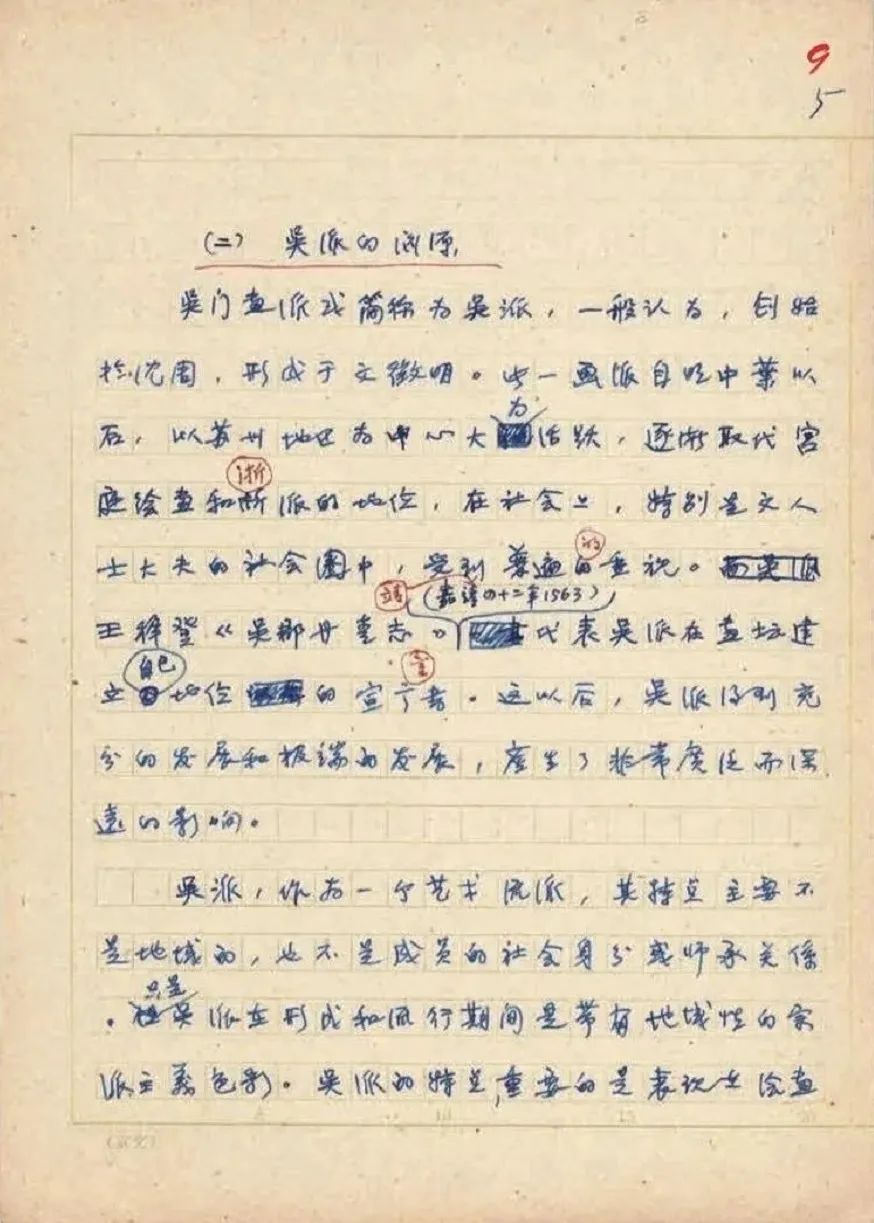 9
5
(二) 吴派的渊源
吴门画派或简称为吴派，一般认为，创始
於沈周，形成于文徵明。此一画派自明中葉以
后，以苏州地区为中心大为活跃，逐渐取代宫
庭绘画和浙派的地位，在社会上，特别是文人
士大夫的社会圈中，受到普遍的重视。
王穉登《吴郡丹青志》(嘉靖四十二年1563)代表吴派在画坛建
立自己地位的宣言者。这以后，吴派得到充
分的发展和极端的发展，产生了非常广泛而深
远的影响。
吴派，作为一个艺术流派，其特点主要不
是地域的，也不是成员的社会身分或师承关係
。只是吴派在形成和流行期间是带有地域性的宗
派主義色彩。吴派的特点，重要的是表现在绘画